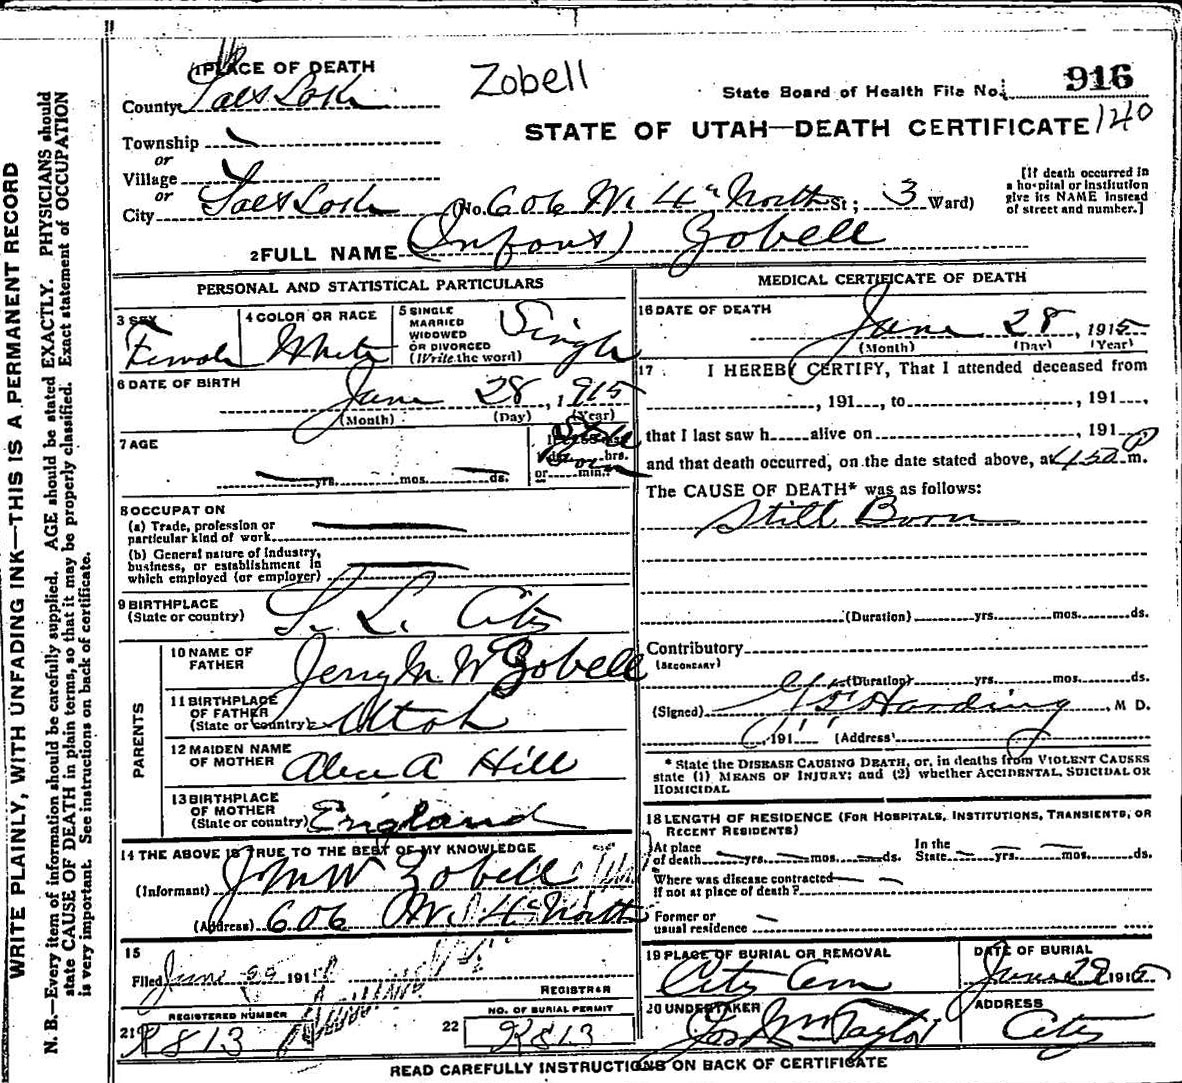 WRITE PLAINLY, WITH UNFADING INK—THIS IS A PERMANENT RECORD
N. B.—Every item of information should be carefully supplied. AGE should be stated EXACTLY. PHYSICIANS should
state CAUSE OF DEATH in plain terms, so that it may be properly classified. Exact statement of OCCUPATION
is very important. See instructions on back of certificate.
1 PLACE OF DEATH
Zobell
State Board of Health File No. 916
County Salt Lake
STATE OF UTAH—DEATH CERTIFICATE 140
Township
or
Village
or
City Salt Lake (No. 606 W. 4th North St; 3 Ward)
[If death occurred in
a hospital or institution
give its NAME instead
of street and number.]
2 FULL NAME (Infant) Zobell
PERSONAL AND STATISTICAL PARTICULARS
3 SEX Female
4 COLOR OR RACE White
5 SINGLE
MARRIED
WIDOWED
OR DIVORCED
(Write the word) Single
6 DATE OF BIRTH June 28, 1915
(Month) (Day) (Year)
7 AGE
yrs. mos. ds.
hrs.
or min.?
8 OCCUPATION
(a) Trade, profession or
particular kind of work
(b) General nature of industry,
business, or establishment in
which employed (or employer)
9 BIRTHPLACE
(State or country) S. L. City
PARENTS
10 NAME OF
FATHER Jerry M W Zobell
11 BIRTHPLACE
OF FATHER
(State or country) Utah
12 MAIDEN NAME
OF MOTHER Alice A Hill
13 BIRTHPLACE
OF MOTHER
(State or country) England
14 THE ABOVE IS TRUE TO THE BEST OF MY KNOWLEDGE
(Informant) J M W Zobell
(Address) 606 W. 4th North
15
Filed June 191
REGISTRAR
REGISTERED NUMBER
21 R 813
NO. OF BURIAL PERMIT
22 R 813
MEDICAL CERTIFICATE OF DEATH
16 DATE OF DEATH
June 28, 1915
(Month) (Day) (Year)
17 I HEREBY CERTIFY, That I attended deceased from
, 191 , to , 191 ,
that I last saw h alive on , 191
and that death occurred, on the date stated above, at 450 P m.
The CAUSE OF DEATH* was as follows:
Still Born
(Duration) yrs. mos. ds.
Contributory
(SECONDARY)
(Duration) yrs. mos. ds.
(Signed) Harding, M D.
, 191 (Address)
* State the DISEASE CAUSING DEATH, or, in deaths from VIOLENT CAUSES
state (1) MEANS OF INJURY; and (2) whether ACCIDENTAL, SUICIDAL OR
HOMICIDAL
18 LENGTH OF RESIDENCE (FOR HOSPITALS, INSTITUTIONS, TRANSIENTS, OR
RECENT RESIDENTS)
At place
of death yrs. mos. ds.
In the
State yrs. mos. ds.
Where was disease contracted
if not at place of death?
Former or
usual residence
19 PLACE OF BURIAL OR REMOVAL
City Cem
DATE OF BURIAL
June 29 1915
20 UNDERTAKER
Jos Wm Taylor
ADDRESS
City
READ CAREFULLY INSTRUCTIONS ON BACK OF CERTIFICATE